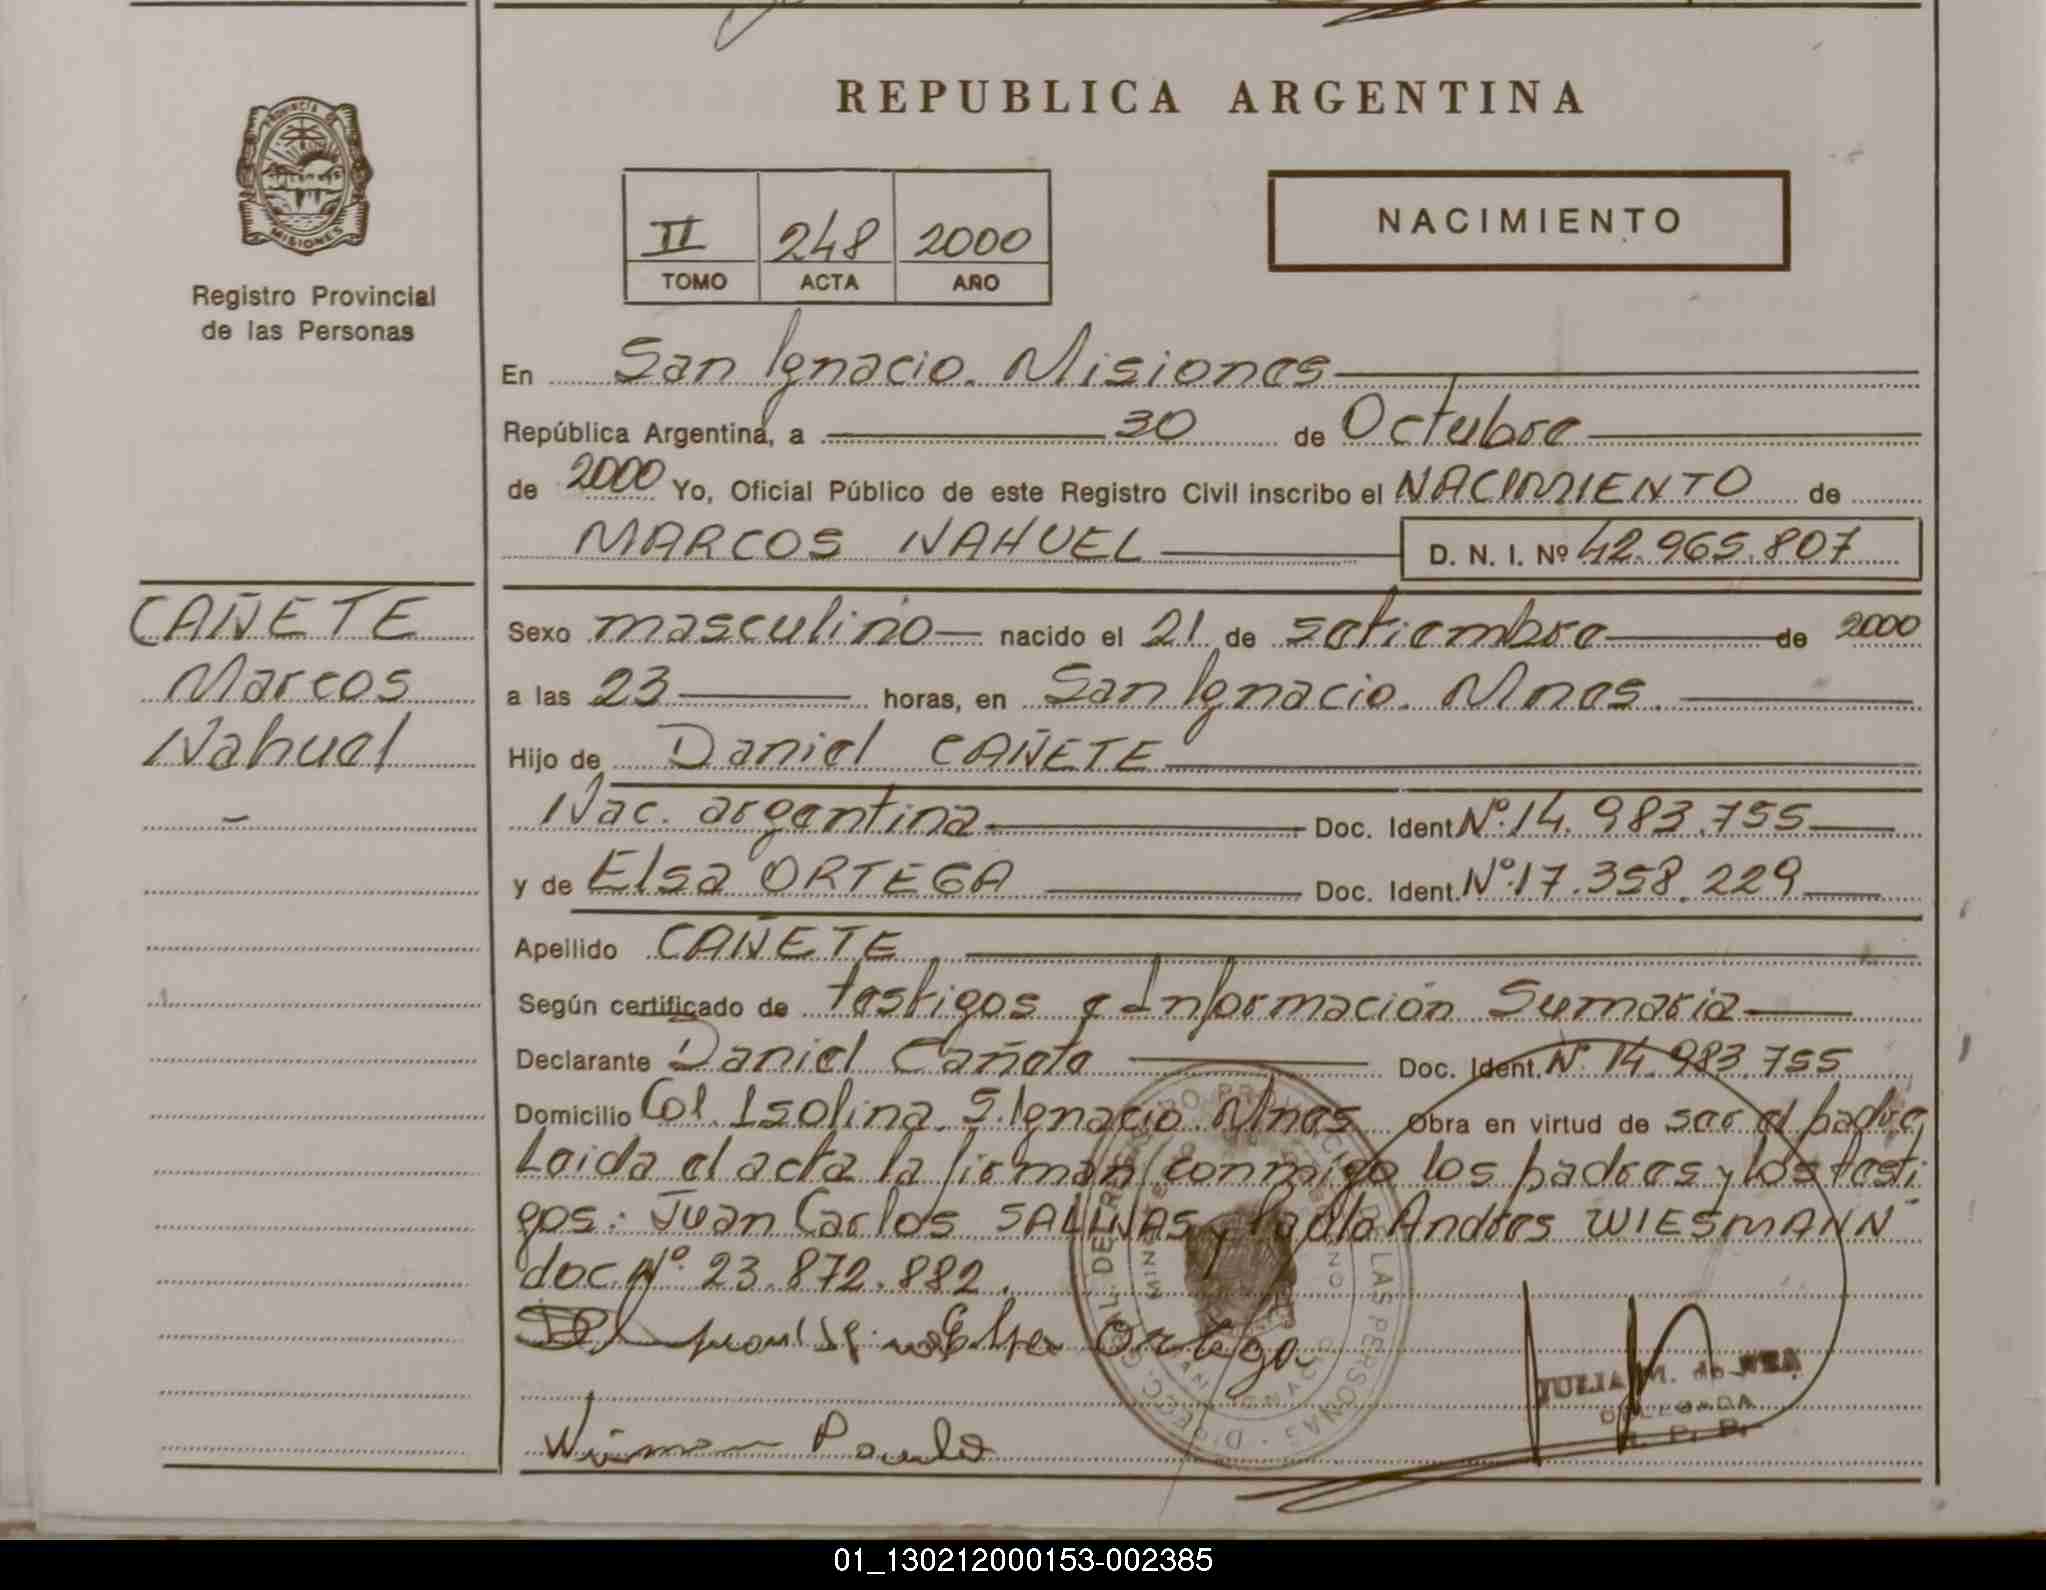 REPUBLICA ARGENTINA
PROVINCIA DE
MISIONES
Registro Provincial
de las Personas
II 248 2000
TOMO ACTA AÑO
NACIMIENTO
En San Ignacio. Misiones
República Argentina, a 30 de Octubre
de 2000 Yo, Oficial Público de este Registro Civil inscribo el NACIMIENTO de
MARCOS NAHUEL D. N. I. Nº 42.965.807
CAÑETE
Marcos
Nahuel
Sexo masculino nacido el 21 de setiembre de 2000
a las 23 horas, en San Ignacio. Mnes.
Hijo de Daniel CAÑETE
Nac. argentina Doc. Ident. Nº 14.983.755
y de Elsa ORTEGA Doc. Ident. Nº 17.358.229
Apellido CAÑETE
Según certificado de testigos e Información Sumaria
Declarante Daniel Cañete Doc. Ident. Nº 14.983.755
Domicilio Col. Isolina. S. Ignacio. Mnes Obra en virtud de ser el padre
Leida el acta la firman conmigo los padres y los testi
gos: Juan Carlos SALINAS y Paulo Andres WIESMANN
doc. Nº 23.872.882.
Elsa Ortega
JULIA M. de
DELEGADA
R. P. P.
01_130212000153-002385